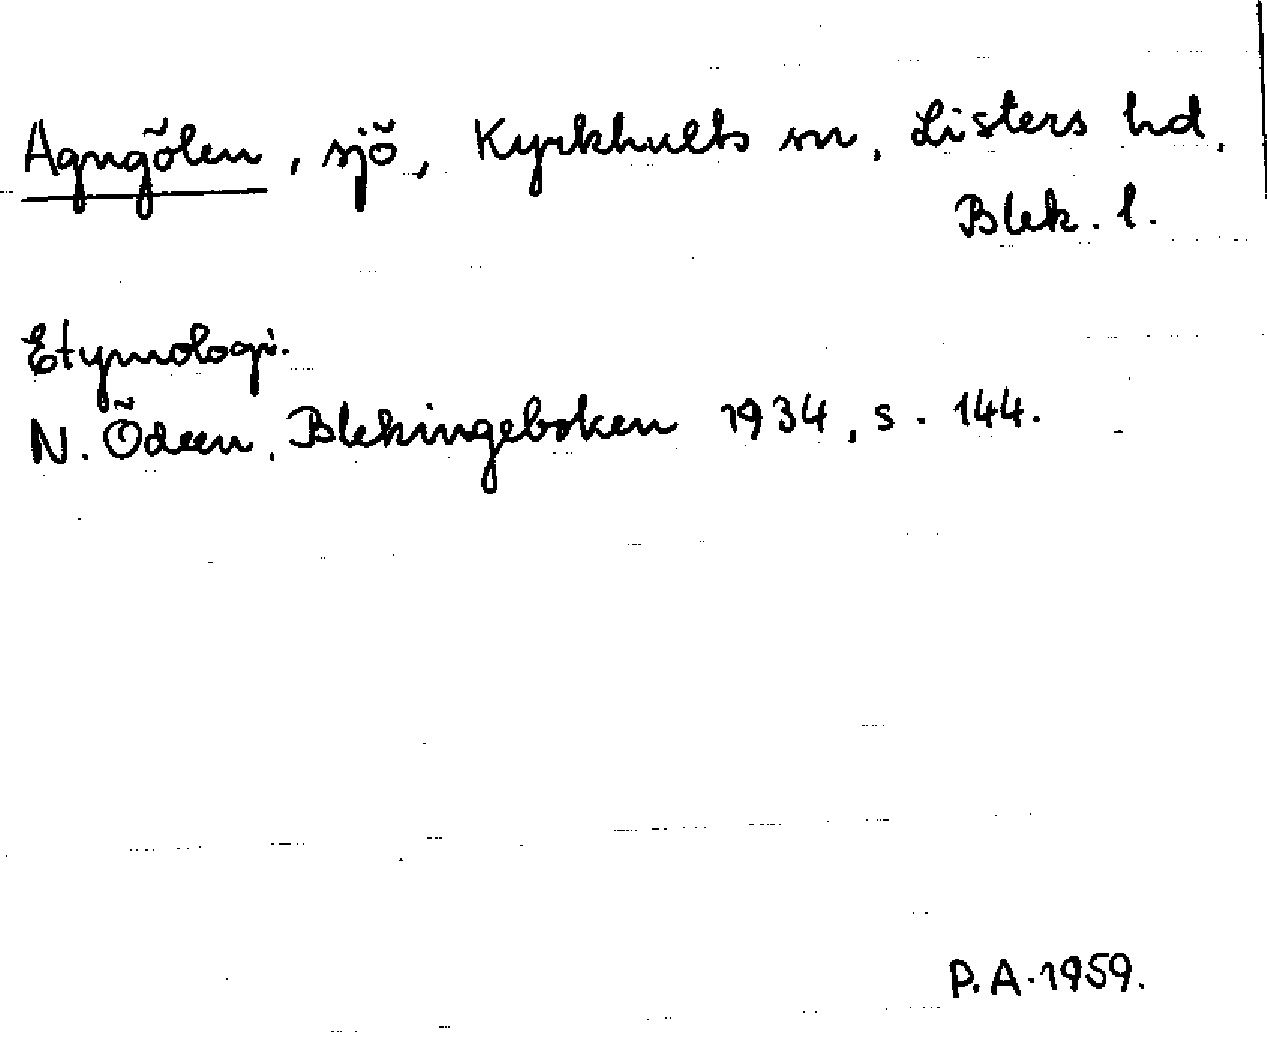 Agngölen, sjö, Kyrkhults sn, Listers hd,
Blek. l.
Etymologi.
N. Ödeen, Blekingeboken 1934, s. 144.
P. A. 1959.